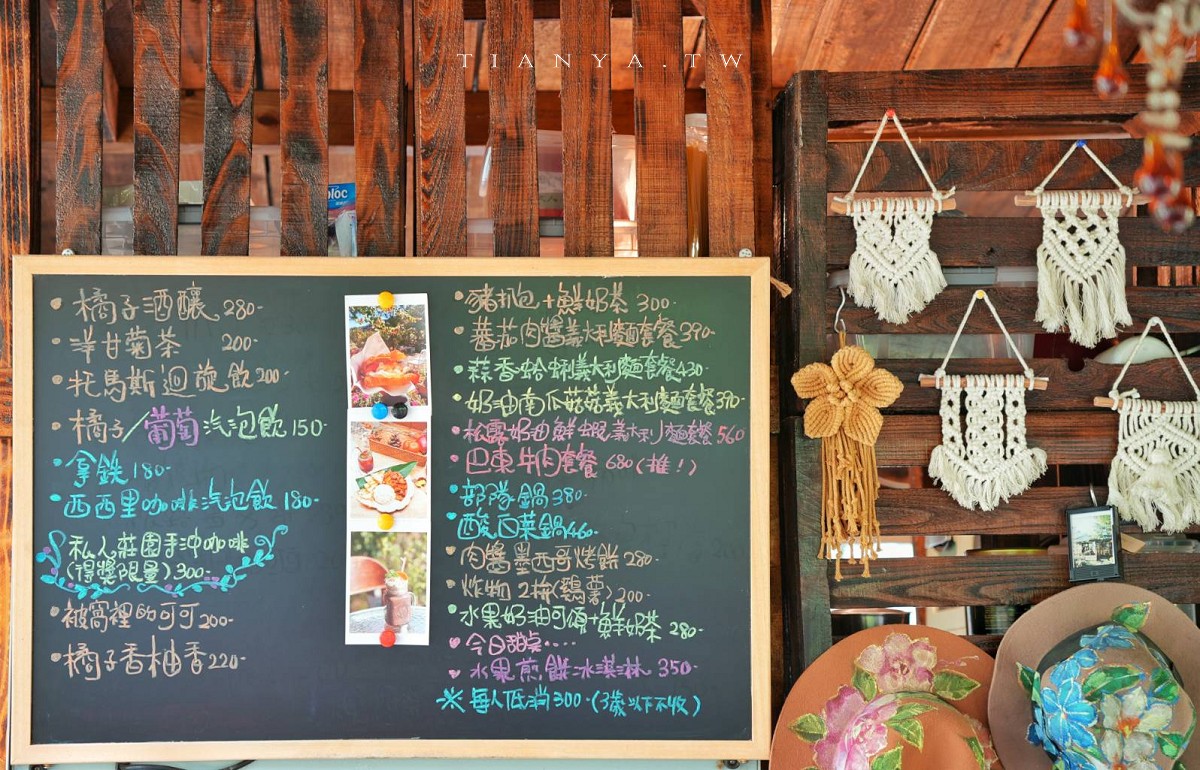 TIANYA.TW
橘子酒釀 280-
洋甘菊茶 200-
托馬斯迴旋飲 200-
橘子/葡萄汽泡飲 150-
拿鐵 180-
西西里咖啡汽泡飲 180-
私人莊園手沖咖啡
(得獎限量) 300-
被窩裡的可可 200-
橘子香柚香 220-
豬扒包+鮮奶茶 300-
蕃茄肉醬義大利麵套餐 390-
蒜香蛤蜊義大利麵套餐 430
奶油南瓜菇菇義大利麵套餐 390-
松露奶油鮮蝦義大利麵套餐 560
巴東牛肉套餐 680 (推!)
部隊鍋 380-
酸白菜鍋 460-
肉醬墨西哥烤餅 280-
炸物2拚(雞薯) 200-
水果奶油可頌+鮮奶茶 280-
今日甜点....
水果煎餅冰淇淋 350-
※每人低消300-(3歲以下不收)